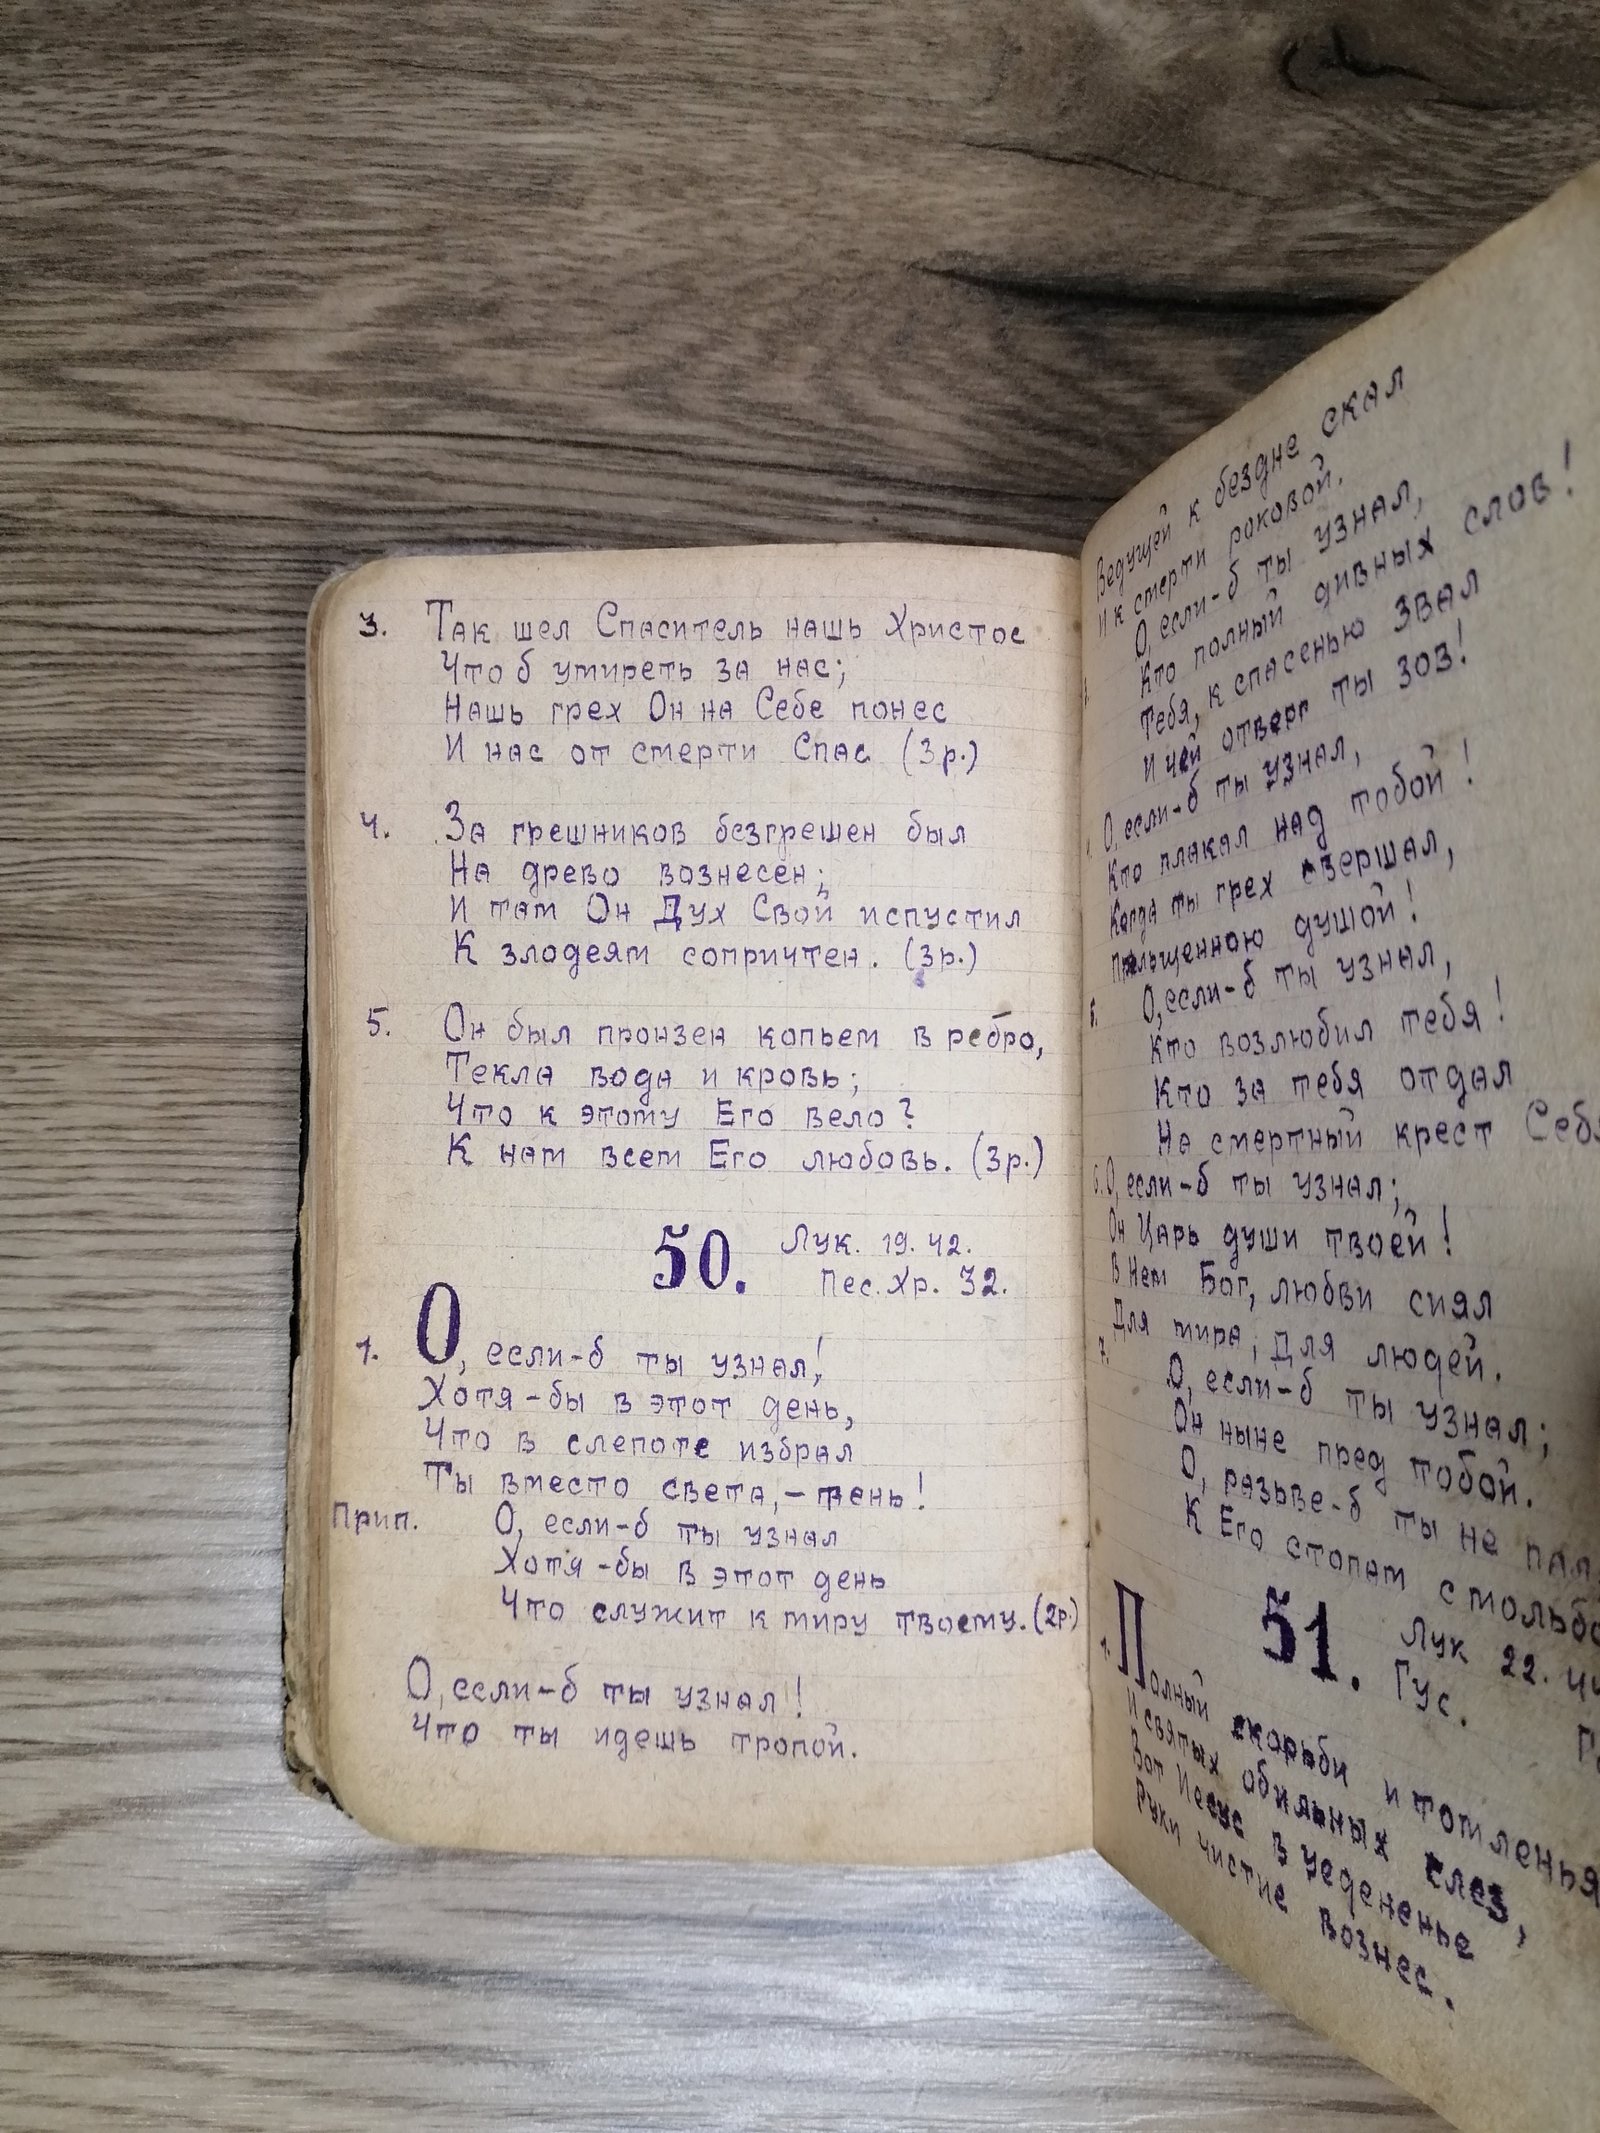 3. Так шел Спаситель нашь Христос
Что б умиреть за нас;
Нашь грех Он на Себе понес
И нас от смерти Спас (3р.)
4. За грешников безгрешен был
На древо вознесен;
И там Он Дух Свой испустил
К злодеям сопричтен. (3р.)
5. Он был пронзен копьем в ребро,
Текла вода и кровь;
Что к этому Его вело?
К нам всем Его любовь. (3р.)
50. Лук. 19. 42.
Пес. Хр. 32.
1. О, если-б ты узнал!
Хотя-бы в этот день,
Что в слепоте избрал
Ты вместо света,-тень!
Прип. О, если-б ты узнал
Хотя-бы в этот день
Что служит к миру твоему. (2р.)
О, если-б ты узнал!
Что ты идешь тропой.
Ведущей к бездне скал
И к смерти роковой.
О, если-б ты узнал,
Кто полный дивных слов!
Тебя, к спасенью звал
И чей отверг ты зов!
О, если-б ты узнал,
Кто плакал над тобой!
Когда ты грех свершал,
Прльщенною душой!
О, если-б ты узнал,
Кто возлюбил тебя!
Кто за тебя отдал
На смертный крест Себя
6. О, если-б ты узнал;
Он Царь души твоей!
В Нем Бог, любви сиял
Для мира, для людей.
7. О, если-б ты узнал;
Он ныне пред тобой.
О, разьве-б ты не пал,
К Его стопам с мольбо
51. Лук 22. 44
Гус.
1. Полный скорьби и томленья
И святых обильных слез,
Вот Иесус в уеденьнье
Руки чистие вознес.